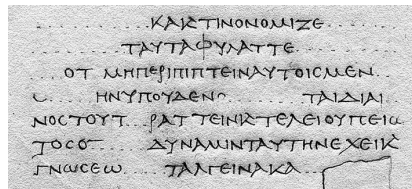 ΚΑΙΣΤΙΝΟΝΟΜΙΖΕ
ΤΑΥΤΑΦΥΛΑΤΤΕ
ΟΤ ΜΗΠΕΡΙΠΙΠΤΕΙΝΑΥΤΟΙϹΜΕΝ
ΗΝΥΠΟΥΔΕΝ ΤΑΙΔΙΑΙ
ΝΟϹΤΟΥΤ ΡΑΤΤΕΙΝ ΤΕΛΕΙΟΥ
ΤΟϹΟ ΔΥΝΑΜΙΝΤΑΥΤΗΝΕΧΕΙΚ
ΓΝΩϹΕΩ ΤΑΛΓΕΙΝΑΚΑ